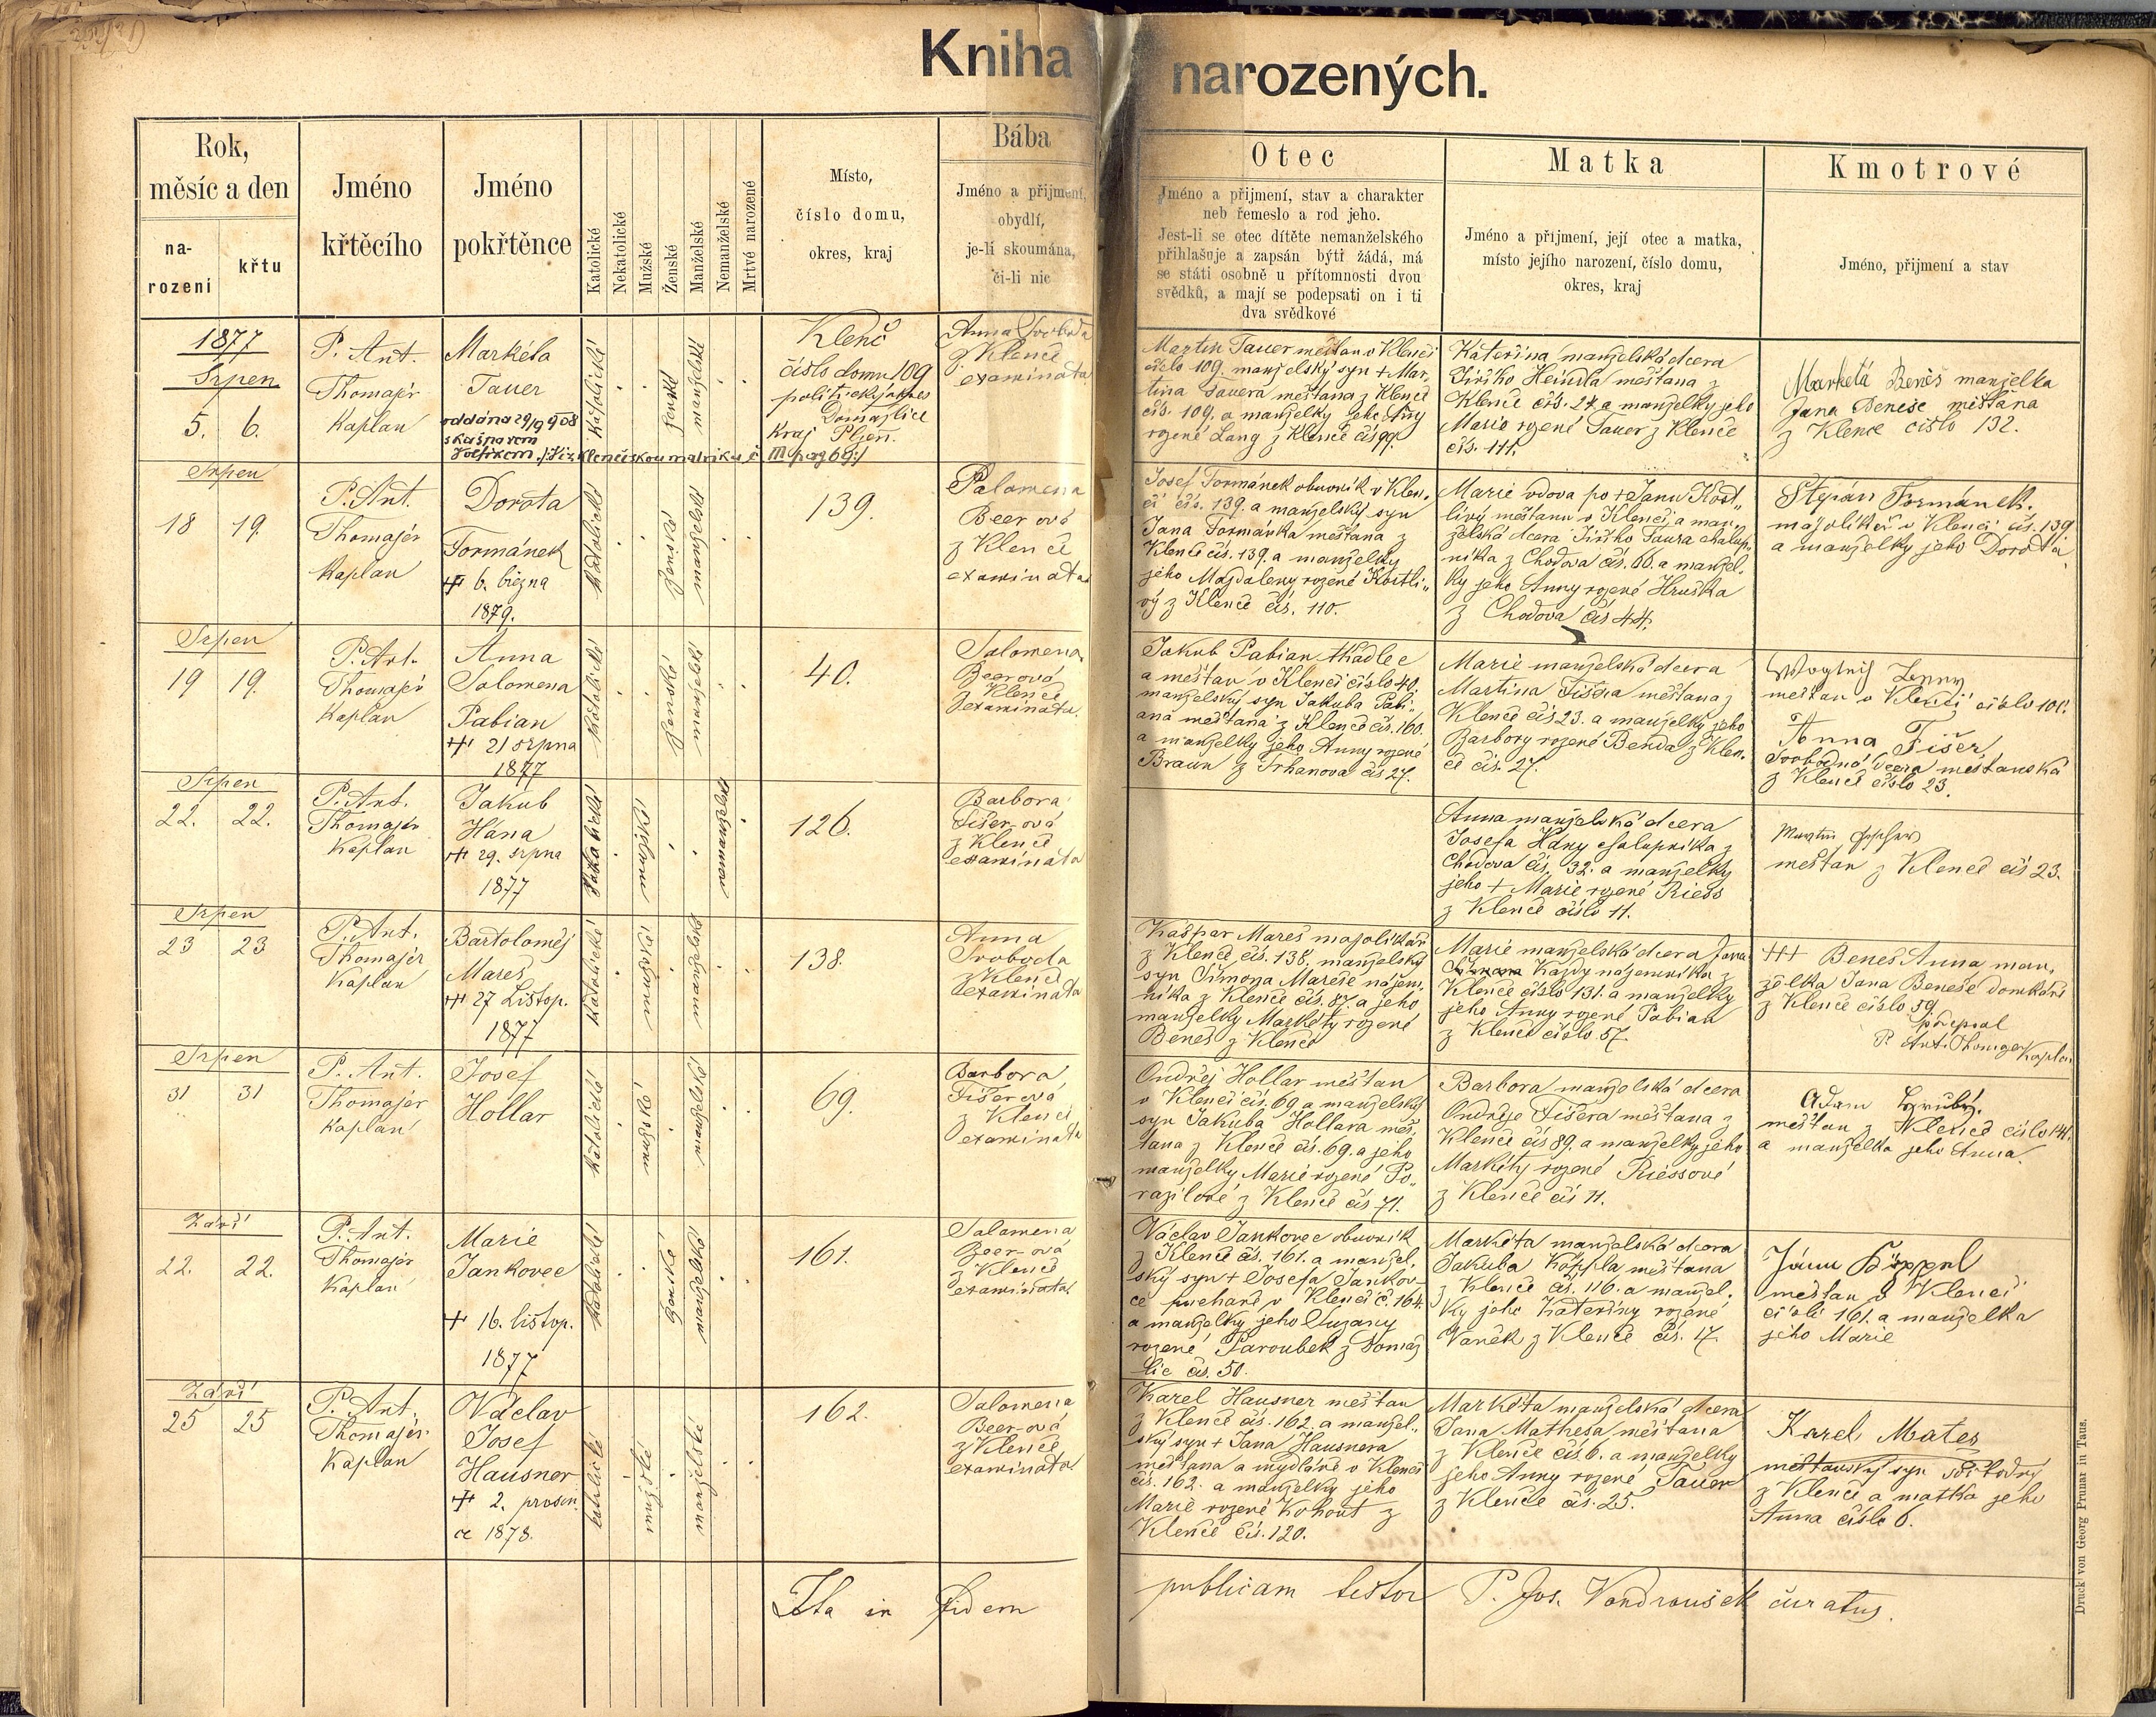 Kniha narozených.
Rok,
měsíc a den
na-
rozeni
křtu
Jméno
křtěcího
Jméno
pokřtěnce
Katolické
Nekatolické
Mužské
Ženské
Manželské
Nemanželské
Mrtvé narozené
Místo,
číslo domu,
okres, kraj
Bába
Jméno a přijmení,
obydlí,
je-li skoumána,
či-li nic
Otec
Jméno a přijmení, stav a charakter
neb řemeslo a rod jeho.
Jest-li se otec dítěte nemanželského
přihlašuje a zapsán býti žádá, má
se státi osobně u přítomnosti dvou
svědků, a mají se podepsati on i ti
dva svědkové
Matka
Jméno a přijmení, její otec a matka,
místo jejího narození, číslo domu,
okres, kraj
Kmotrové
Jméno, přijmení a stav
1877
Srpen
5. 6.
P. Ant.
Thomajer
Kaplan
Markéta
Tauer
oddána 29/9 908
s Kašparem
katolické
ženské
manželské
Klenč
číslo domu 109
politický okres
Domažlice
Kraj Plzeň.
Anna Svoboda
z Klenče
examinata
Martin Tauer měštan v Klenči
číslo 109. manželský syn + Mar-
tina Tauera měštana z Klenče
čís. 109. a manželky jeho Anny
rozené Lang z Klenče čís 99.
Kateřina manželská dcera
Jiřího Heindla měštana z
Klenče čís. 24. a manželky jeho
Marie rozené Tauer z Klenče
čís. 111.
Marketa Beneš manželka
Jana Beneše měštana
z Klenče číslo 132.
Srpen
18 19.
P. Ant.
Thomajer
Kaplan
Dorota
Formánek
+ 6. března
1879.
katolické
ženské
manželské
139.
Salomena
Beerová
z Klenče
examinata
Josef Formánek obuvník v Klen„
či čís. 139. a manželský syn
Jana Formánka měštana z
Klenče čís. 139. a manželky
jeho Magdaleny rozené Kostli„
vý z Klenče čís. 110.
Marie vdova po + Janu Kost„
livý měštanu v Klenči, a man„
želská dcera Jiřího Taura chalup„
níka z Chodova čís. 66. a manžel„
ky jeho Anny rozené Hruška
z Chodova čís 44.
Štepán Formánek.
majolikář v Klenči čís. 139
a manželky jeho Dorota
Srpen
19 19.
P. Ant.
Thomajer
Kaplan
Anna
Salomena
Pabian
+ 21 srpna
1877
katolické
ženské
manželské
40.
Salomena
Beerová
z Klenče
examinata.
Jakub Pabian tkadlec
a měštan v Klenči číslo 40.
manželský syn Jakuba Pabi„
ana měštana z Klenče čís. 160.
a manželky jeho Anny rozené
Braun z Trhanova čís 27.
Marie manželská dcera
Martina Fišera měštana z
Klenče čís 23. a manželky jeho
Barbory rozené Benda z Klen„
če čís. 27.
měštan v Klenči číslo 101.
Anna Fišer
svobodná dcera měštanská
z Klenče číslo 23.
Srpen
22. 22.
P. Ant.
Thomajer
Kaplan
Jakub
Hána
+ 29. srpna
1877
katolické
mužské
nemanželské
126.
Barbora
Fišer-ová
z Klenče
examinata
Anna manželská dcera
Josefa Hány chalupníka z
Chodova čís. 32. a manželky
jeho + Marie rozené Riess
z Klenče číslo 11.
měštan z Klenče čís 23.
Srpen
23 23
P. Ant.
Thomajer
Kaplan
Bartoloměj
Mareš
+ 27 Listop.
1877
katolické
mužské
manželské
138.
Anna
Svoboda
z Klenče
examinata
Kašpar Mareš majolikář
z Klenče čís. 138. manželský
syn Šimona Mareše nájem„
níka z Klenče čís. 87. a jeho
manželky Markéty rozené
Beneš z Klenče
Marie manželská dcera Jana
Kazdy nájemníka z
Klenče číslo 131. a manželky
jeho Anny rozené Pabian
z Klenče číslo 57.
+++ Beneš Anna man„
želka Jana Beneše domkáře
z Klenče číslo 59.
podepsal
P. Ant. Thomajer Kaplan
Srpen
31 31
P. Ant.
Thomajer
Kaplan
Josef
Hollar
katolické
mužské
manželské
69.
Barbora
Fišerová
z Klenče
examinata
Ondřej Hollar měštan
v Klenči čís. 69 a manželský
syn Jakuba Hollara měš„
tana z Klenče čís. 69. a jeho
manželky Marie rozené Po„
razilové z Klenče čís 71.
Barbora manželská dcera
Ondřeje Fišera měštana z
Klenče čís 89. a manželky jeho
Markéty rozené Riessové
z Klenče čís 11.
Adam Hrubý.
měštan z Klenče číslo 141.
a manželka jeho Anna.
Září
22. 22.
P. Ant.
Thomajer
Kaplan
Marie
Jankovec
+ 16. listop.
1877
katolické
ženské
manželské
161.
Salomena
Beer-ová
z Klenče
examinata
Václav Jankovec obuvník
z Klenče čís. 161. a manžel„
ský syn + Josefa Jankov-
ce puchaře v Klenči č. 164.
a manželky jeho Zuzany
rozené Paroubek z Domaž
lic čís. 50.
Markéta manželská dcera
Jakuba Köppla měštana
z Klenče čís. 116. a manžel„
ky jeho Kateřiny rozené
Vaněk z Klenče čís. 17.
měštan v Klenči
číslo 161. a manželka
jeho Marie
Září
25 25
P. Ant.
Thomajer
Kaplan
Václav
Josef
Hausner
+ 2. prosin„
ce 1878.
katolické
mužské
manželské
162.
Salomena
Beer-ová
z Klenče
examinata
Karel Hausner měštan
z Klenče čís. 162. a manžel„
ský syn + Jana Hausnera
měštana a mydláře v Klenči
čís. 162. a manželky jeho
Marie rozené Kohout z
Klenče čís. 120.
Markéta manželská dcera
Jana Mathesa měštana
z Klenče čís 6. a manželky
jeho Anny rozené Tauer
z Klenče čís. 25.
Karel Mates
měštanský syn svobodný
z Klenče a matka jeho
Anna číslo 6.
Ita in fidem publicam testor P. Jos. Vondroušek curatus.
Druck von Georg Prunar in Taus.